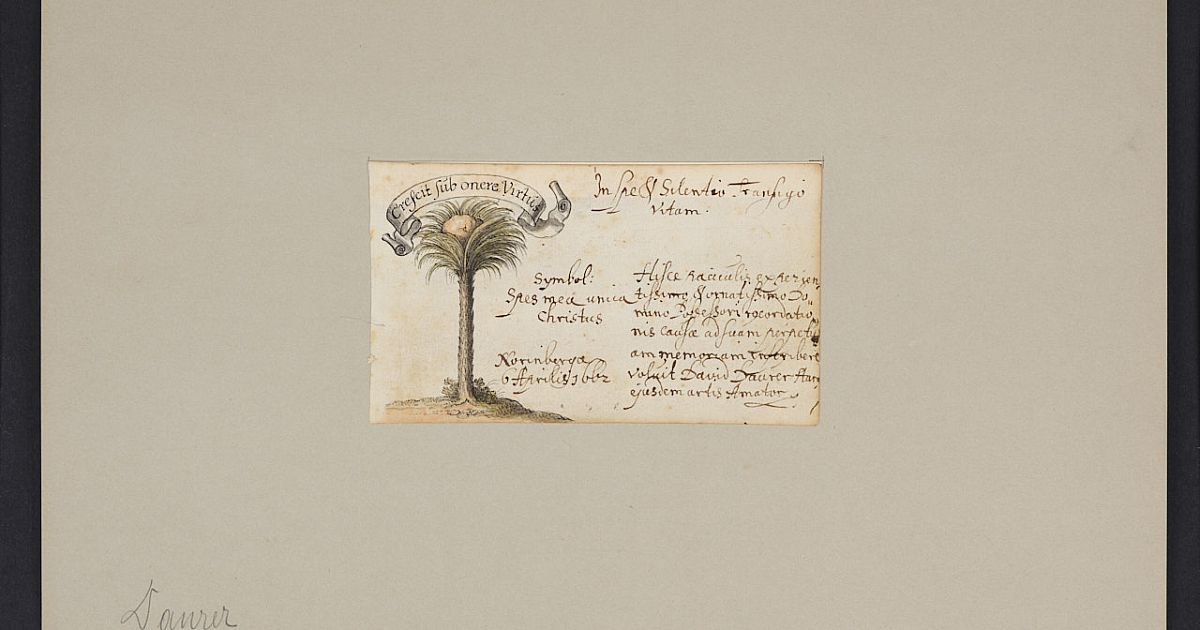 Crescit sub onere Virtus
In spe & Silentio transigo
vitam.
Symbol:
Spes mea unica
Christus
Norinbergæ
6 Aprilis 1662
Hisce pauculis experien
tissimo & ornatissimo Do„
mino Possessori recordatio
nis causa ad suam perpetu
am memoriam inscribere
voluit David Daurer
ejusdem artis Amator.
Daurer